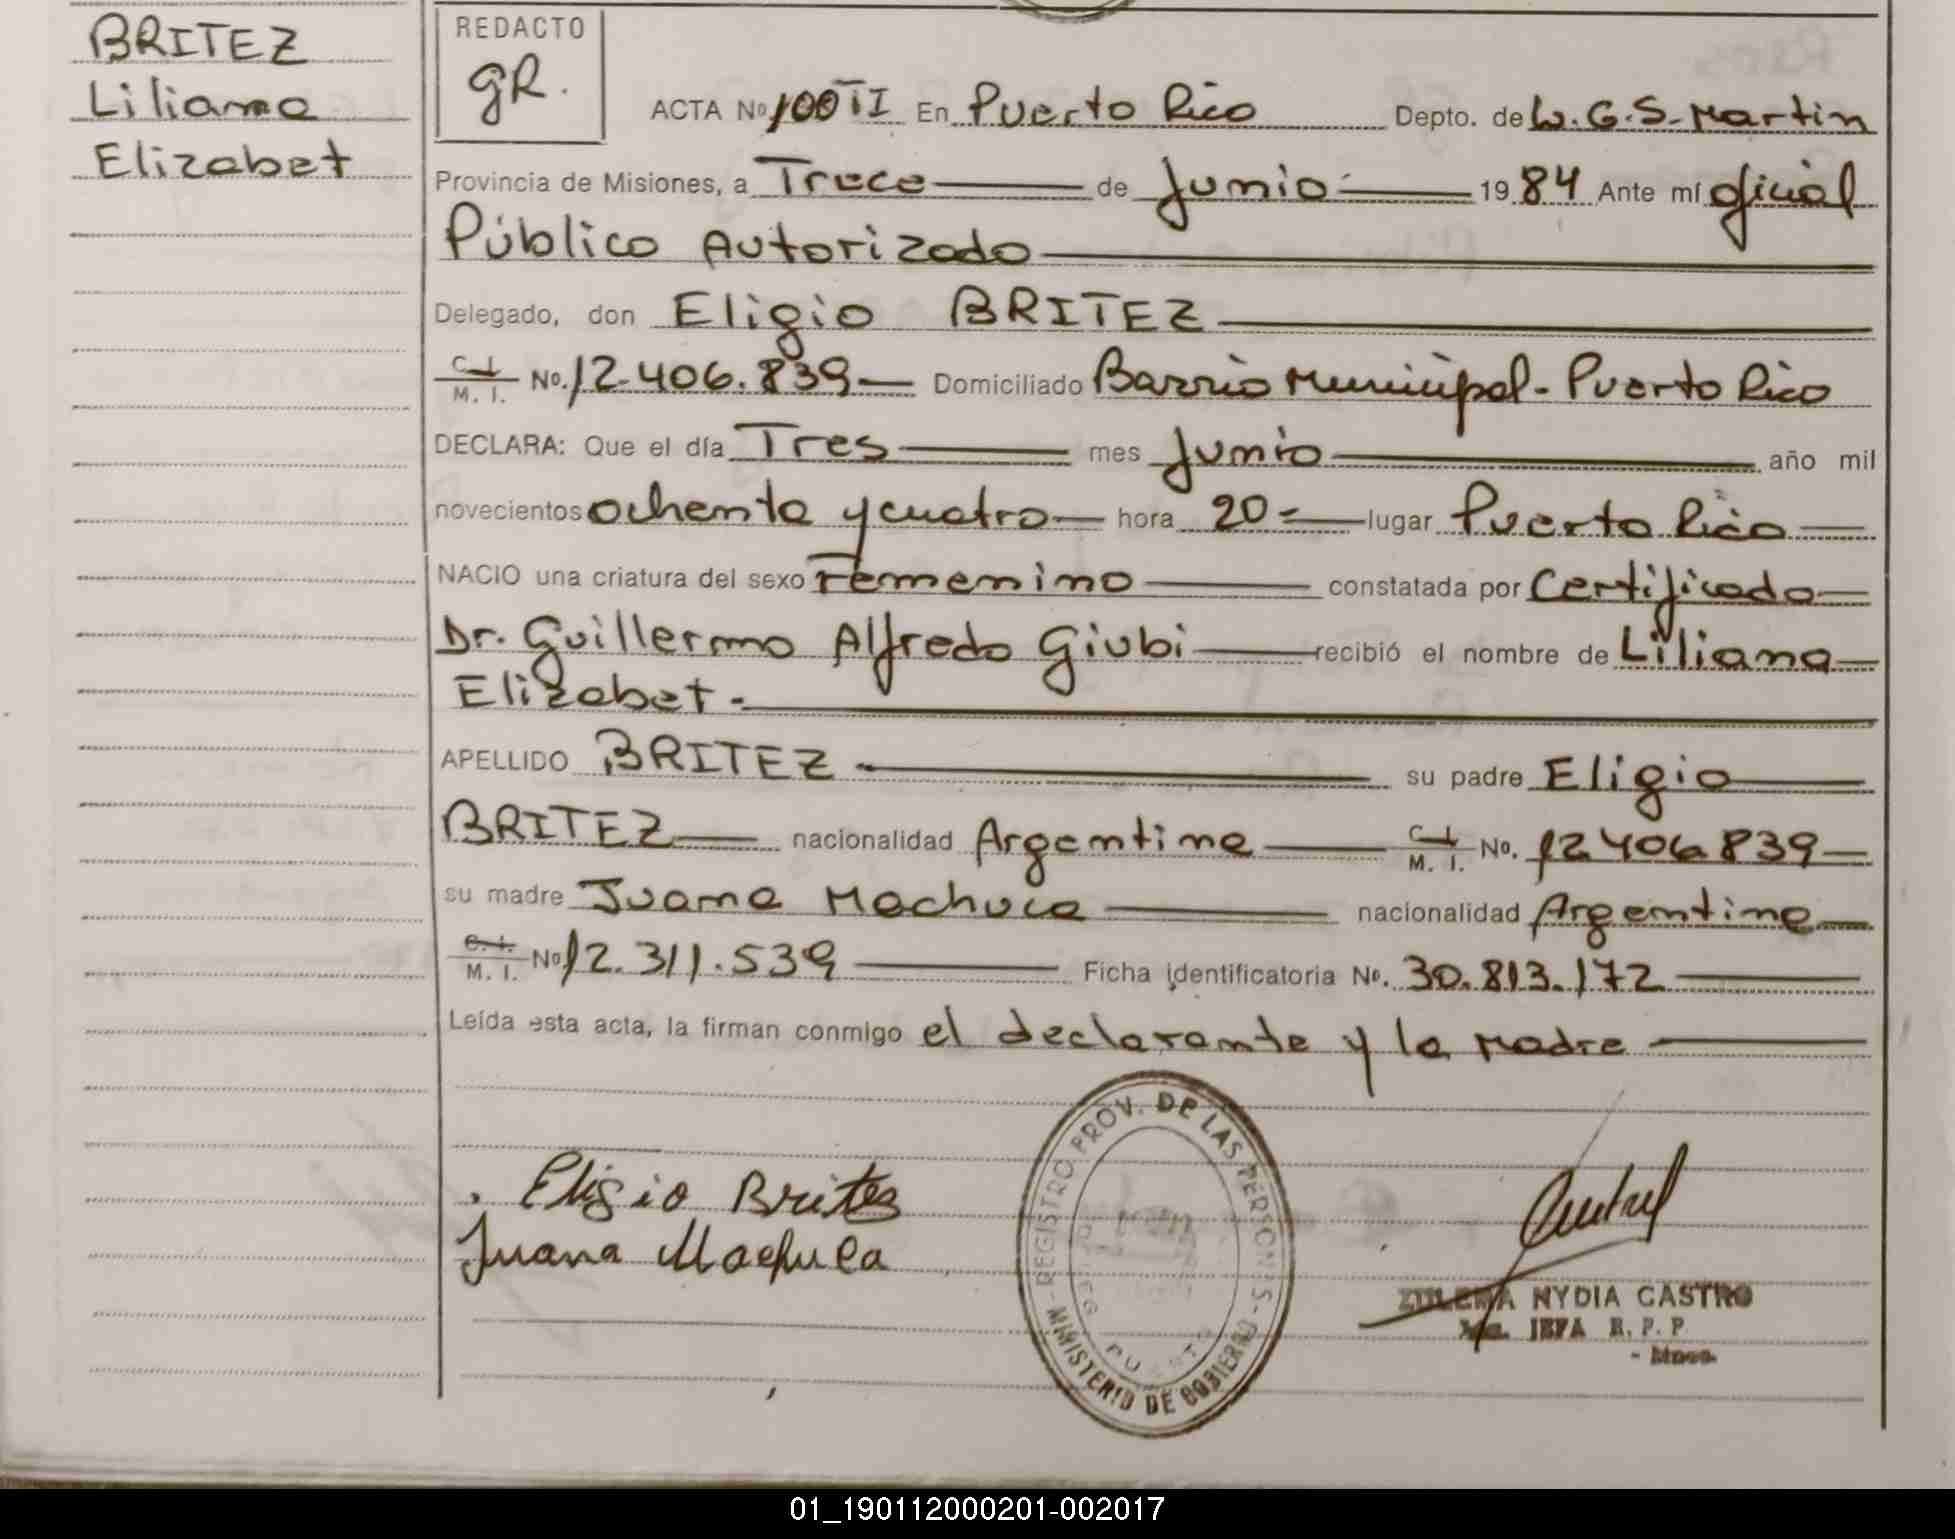 BRITEZ
Liliana
Elizabet
REDACTO
gR.
ACTA No 100 TI En Puerto Rico Depto. de L.G.S. Martin
Provincia de Misiones, a Trece de Junio 1984 Ante mí oficial
Público Autorizado
Delegado, don Eligio BRITEZ
C.I. M. I. No. 12.406.839 Domiciliado Barrio Municipal - Puerto Rico
DECLARA: Que el día Tres mes Junio año mil
novecientos ochenta y cuatro hora 20 lugar Puerto Rico
NACIO una criatura del sexo Femenino constatada por Certificado
Dr. Guillermo Alfredo Giubi recibió el nombre de Liliana
Elizabet.
APELLIDO BRITEZ su padre Eligio
BRITEZ nacionalidad Argentina C.I. M. I. No. 12.406.839
su madre Juana Machuca nacionalidad Argentina
C.I. M. I. No 12.311.539 Ficha identificatoria No. 30.813.172
Leída esta acta, la firman conmigo el declarante y la Madre
Eligio Britez
Juana Machuca
REGISTRO PROV. DE LAS PERSONAS - MINISTERIO DE GOBIERNO
ZULEMA NYDIA CASTRO
JEFA R. P. P.
01_190112000201-002017